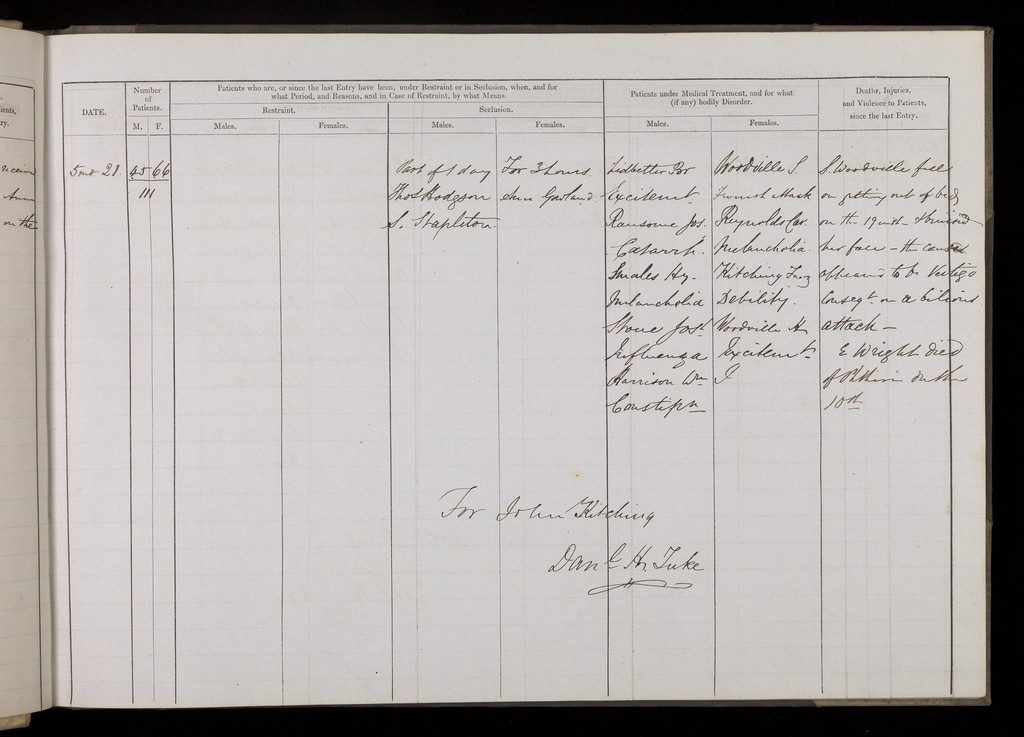 DATE.
Number
of
Patients.
M. F.
Patients who are, or since the last Entry have been, under Restraint or in Seclusion, when, and for
what Period, and Reasons, and in Case of Restraint, by what Means.
Restraint.
Males. Females.
Seclusion.
Males. Females.
Patients under Medical Treatment, and for what
(if any) bodily Disorder.
Males. Females.
Deaths, Injuries,
and Violence to Patients,
since the last Entry.
5 mo 21.
45 66
111
Part of 1 day
Thos Hodgson
S. Stapleton
For 3 hours
Ann Garland
Lidbetter
Excitemt
Ransome Jos.
Catarrh.
Smales Hy.
Melancholia
Stone Josh
Influenza
Harrison Wm
Constipn
Woodville S.
attack
Reynolds Car.
Melancholia
Kitching
Debility.
Woodville H
Excitemt
S. Woodville fell
on getting out of bed
on the 19 inst & bruised
her face - the cause
appeared to be Vertigo
conseqt on a bilious
attack -
E Wright died
of Phthisis on the
10th
For John Kitching
Danl H. Tuke
ients,
ry.
on the